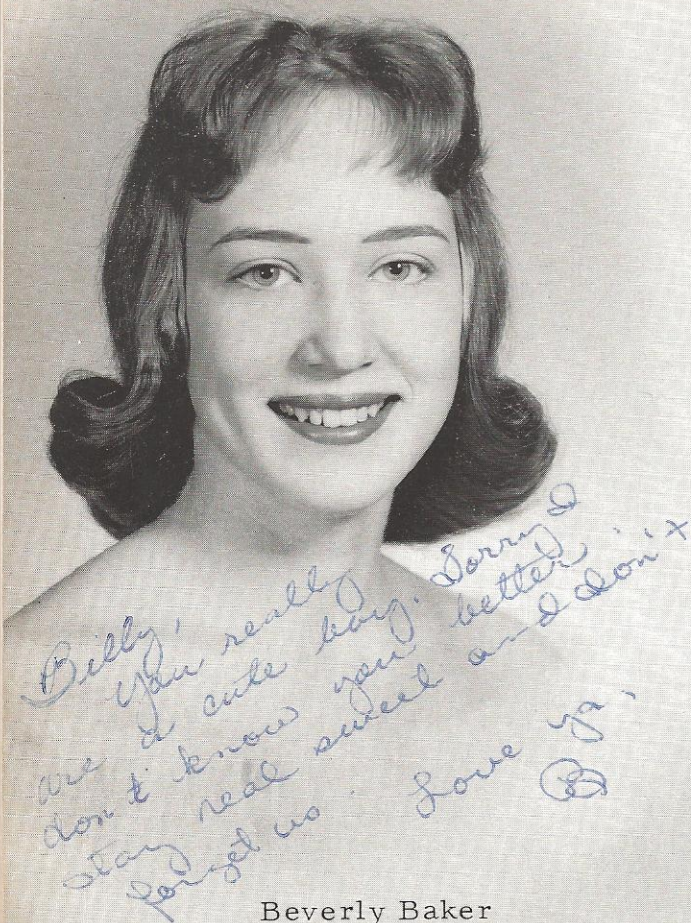 Billy,
You really
are a cute boy. Sorry I
don't know you better.
stay real sweet and don't
forget us. Love ya,
B
Beverly Baker